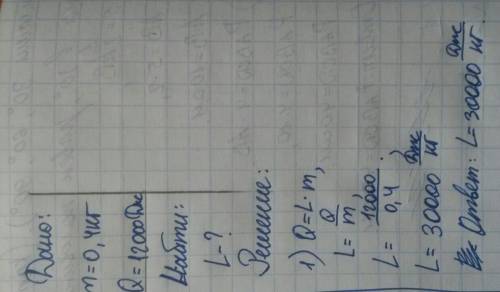 Дано:
m=0,4кг
Q=12000Дж
Найти:
L=?
Решение:
1) Q=L·m,
L=Q/m
L=12000/0,4,
L=30000 Дж/кг
Ответ: L=30000 Дж/кг.